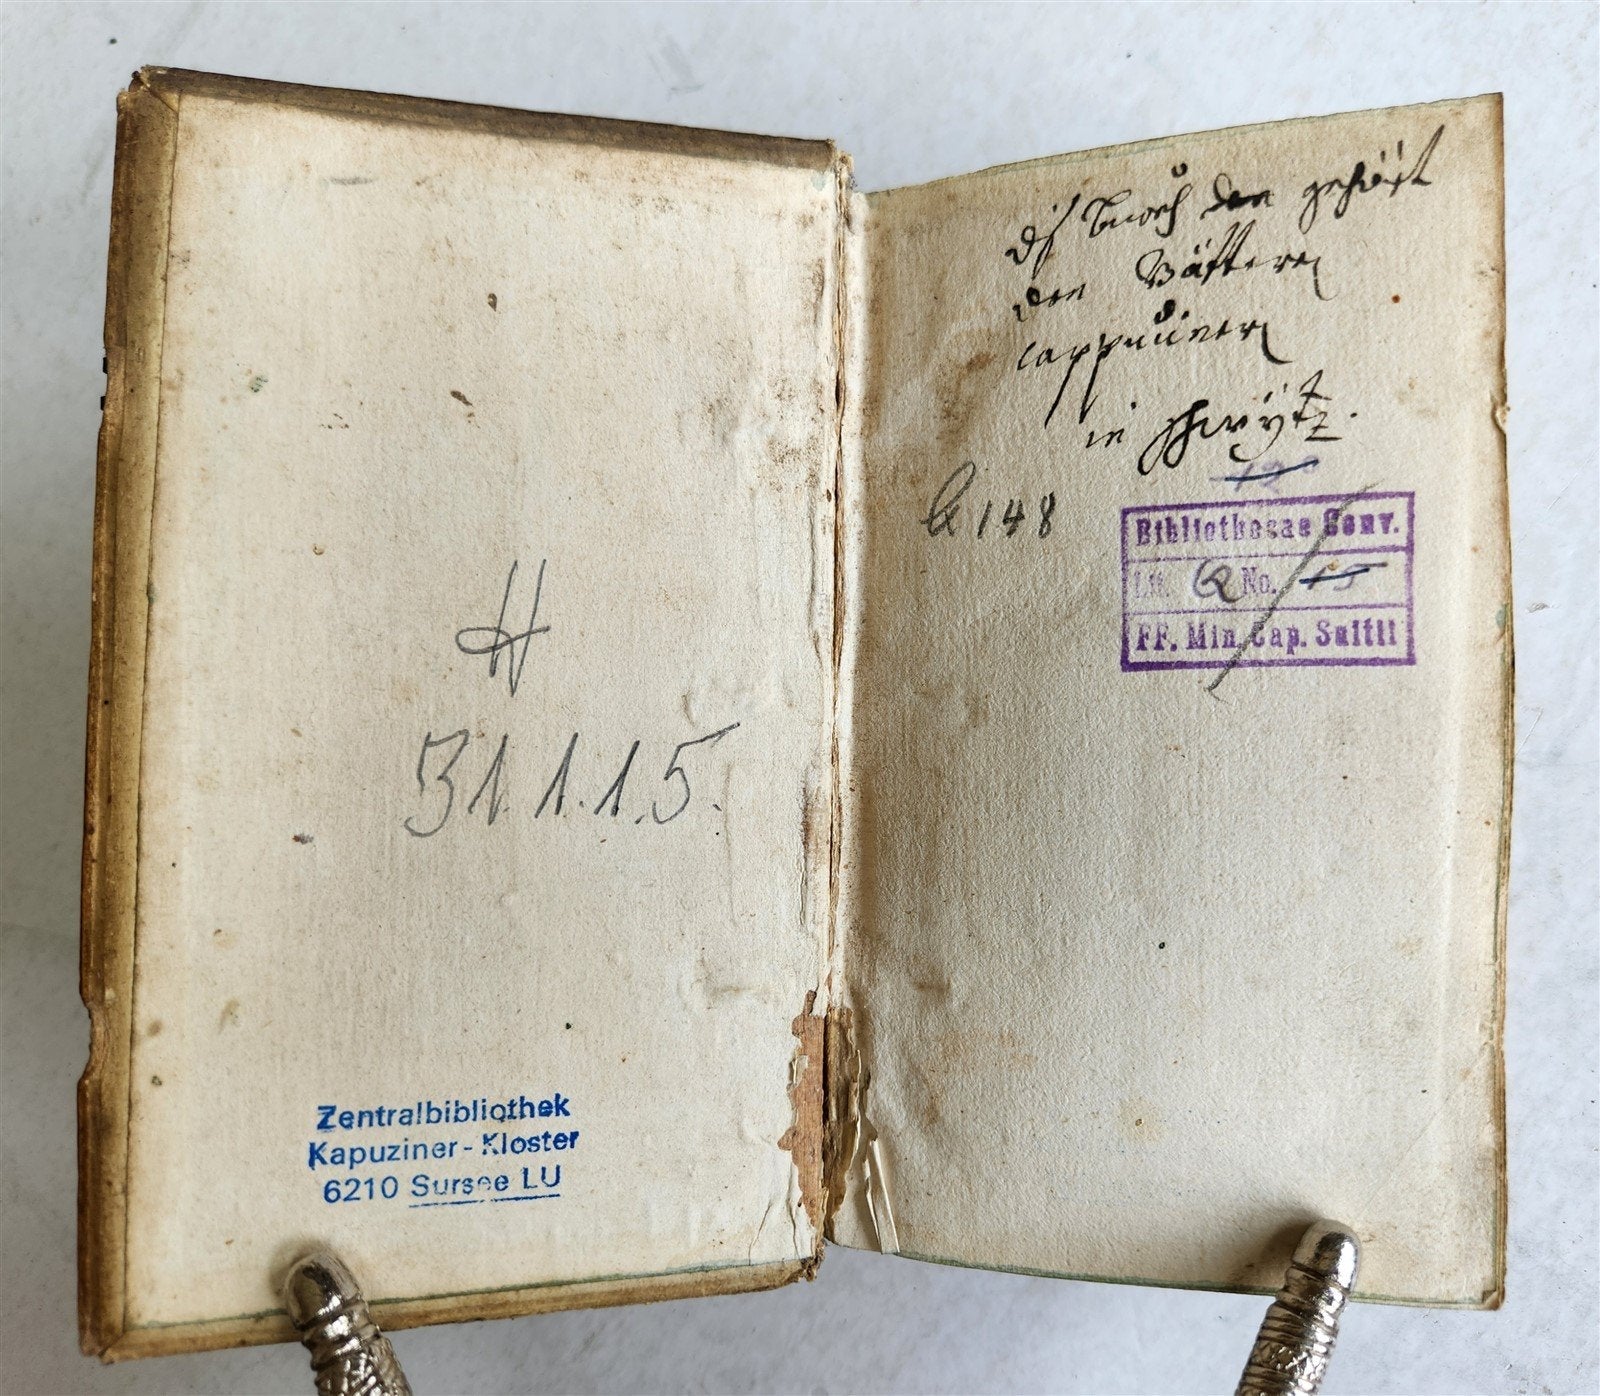 H
31.1.1.5.
Zentralbibliothek
Kapuziner-Kloster
6210 Sursee LU
diß buoch den gehört
den Vätteren
cappuciner
in schwÿtz.
Q 148
Bibliothecae Conv.
Litt. Q No. 15
FF. Min. Cap. Suitii